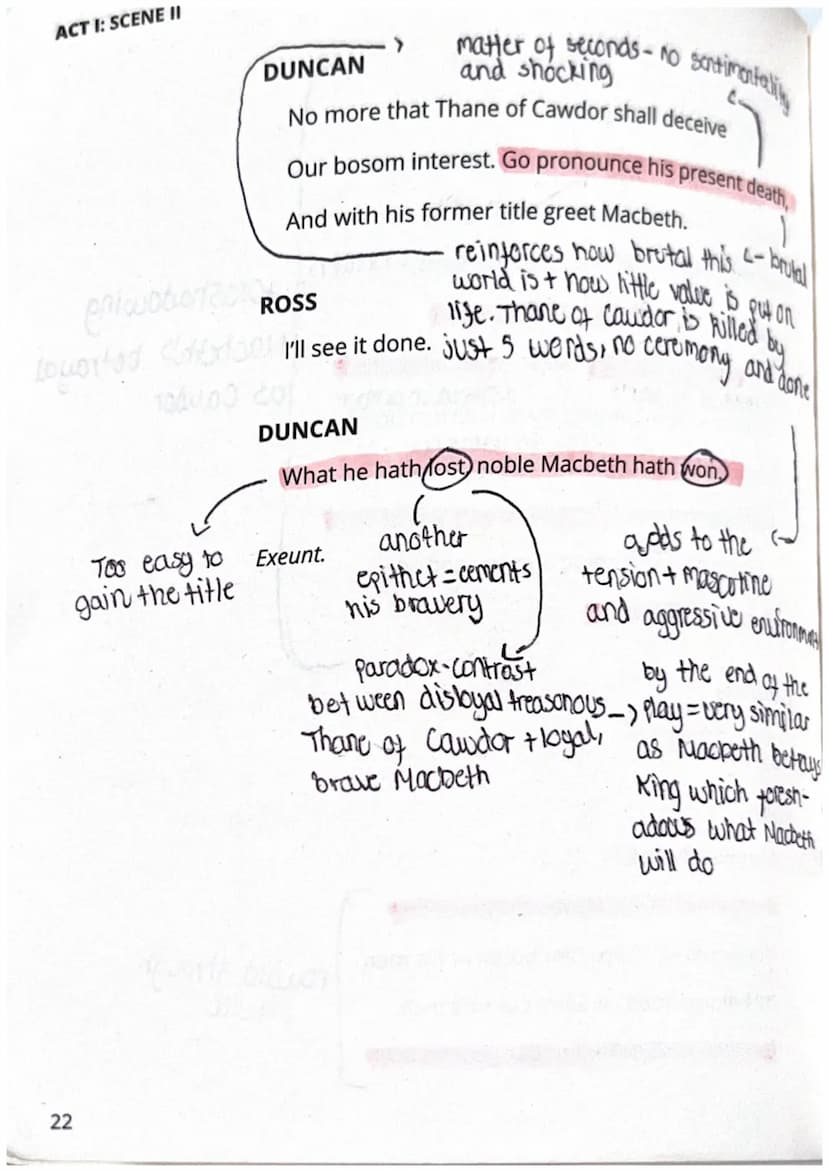 ACT I: SCENE II
DUNCAN
matter of seconds - no sentimentality
and shocking
No more that Thane of Cawdor shall deceive
Our bosom interest. Go pronounce his present death,
And with his former title greet Macbeth.
reinforces how brutal this brutal
world is + how little value is put on
life. Thane of Cawdor is killed by
just 5 words, no ceremony and done
ROSS
I'll see it done.
DUNCAN
What he hath lost noble Macbeth hath won.
Too easy to
gain the title
Exeunt.
another
epithet = cements
his bravery
adds to the
tension + masculine
and aggressive environment
paradox - contrast
between disloyal treasonous
Thane of Cawdor + loyal,
brave Macbeth
by the end of the
play = very similar
as Macbeth betrays
King which foresh-
adows what Macbeth
will do
22